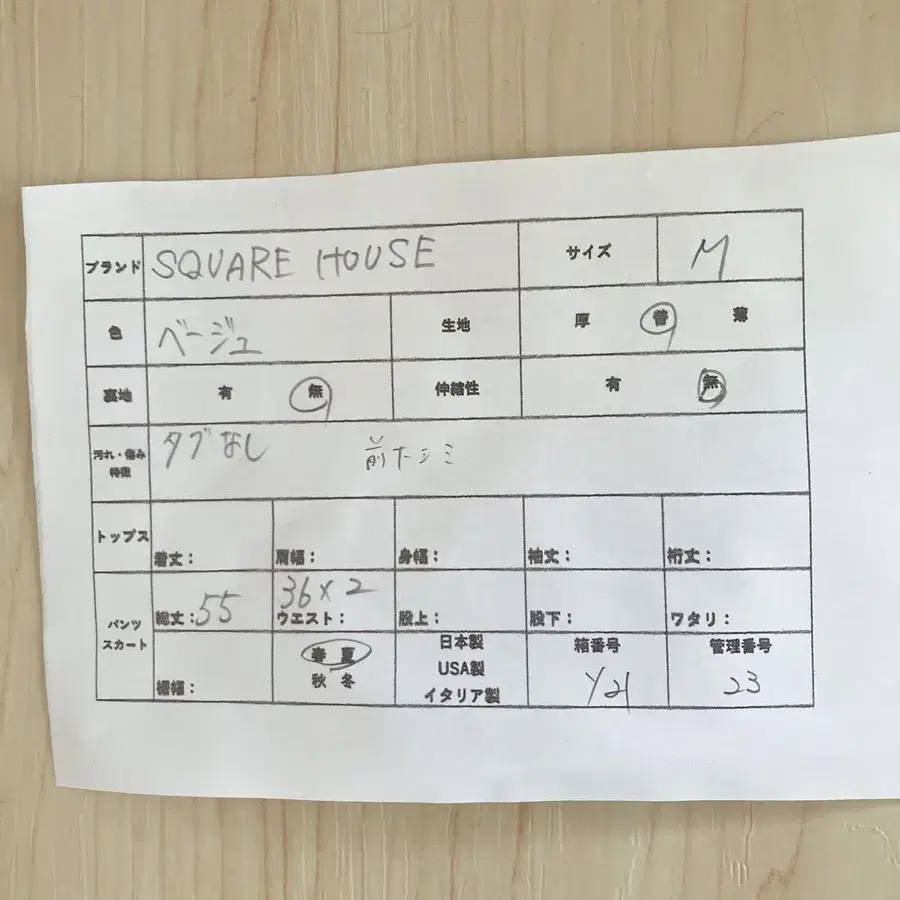 ブランド SQUARE HOUSE サイズ M
色 ベージュ 生地 厚 普 薄
裏地 有 無 伸縮性 有 無
汚れ・傷み
特徴
タブなし 前たシミ
トップス 着丈: 肩幅: 身幅: 袖丈: 裄丈:
パンツ
スカート
総丈:55 36×2
ウエスト: 股上: 股下: ワタリ:
裾幅: 春 夏
秋 冬
日本製
USA製
イタリア製
箱番号
Y21
管理番号
23